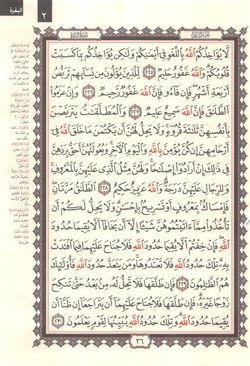 البقرة
٢
لَّا يُؤَاخِذُكُمُ ٱللَّهُ بِٱللَّغْوِ فِىٓ أَيْمَٰنِكُمْ وَلَٰكِن يُؤَاخِذُكُم بِمَا كَسَبَتْ
قُلُوبُكُمْ وَٱللَّهُ غَفُورٌ حَلِيمٌ ٢٢٥ لِّلَّذِينَ يُؤْلُونَ مِن نِّسَآئِهِمْ تَرَبُّصُ
أَرْبَعَةِ أَشْهُرٍ فَإِن فَآءُو فَإِنَّ ٱللَّهَ غَفُورٌ رَّحِيمٌ ٢٢٦ وَإِنْ عَزَمُوا۟
ٱلطَّلَٰقَ فَإِنَّ ٱللَّهَ سَمِيعٌ عَلِيمٌ ٢٢٧ وَٱلْمُطَلَّقَٰتُ يَتَرَبَّصْنَ
بِأَنفُسِهِنَّ ثَلَٰثَةَ قُرُوٓءٍ وَلَا يَحِلُّ لَهُنَّ أَن يَكْتُمْنَ مَا خَلَقَ ٱللَّهُ فِىٓ
أَرْحَامِهِنَّ إِن كُنَّ يُؤْمِنَّ بِٱللَّهِ وَٱلْيَوْمِ ٱلْءَاخِرِ وَبُعُولَتُهُنَّ أَحَقُّ بِرَدِّهِنَّ
فِى ذَٰلِكَ إِنْ أَرَادُوٓا۟ إِصْلَٰحًا وَلَهُنَّ مِثْلُ ٱلَّذِى عَلَيْهِنَّ بِٱلْمَعْرُوفِ
وَلِلرِّجَالِ عَلَيْهِنَّ دَرَجَةٌ وَٱللَّهُ عَزِيزٌ حَكِيمٌ ٢٢٨ ٱلطَّلَٰقُ مَرَّتَانِ
فَإِمْسَاكٌۢ بِمَعْرُوفٍ أَوْ تَسْرِيحٌۢ بِإِحْسَٰنٍ وَلَا يَحِلُّ لَكُمْ أَن
تَأْخُذُوا۟ مِمَّآ ءَاتَيْتُمُوهُنَّ شَيْـًٔا إِلَّآ أَن يَخَافَآ أَلَّا يُقِيمَا حُدُودَ
ٱللَّهِ فَإِنْ خِفْتُمْ أَلَّا يُقِيمَا حُدُودَ ٱللَّهِ فَلَا جُنَاحَ عَلَيْهِمَا فِيمَا ٱفْتَدَتْ
بِهِۦ تِلْكَ حُدُودُ ٱللَّهِ فَلَا تَعْتَدُوهَا وَمَن يَتَعَدَّ حُدُودَ ٱللَّهِ فَأُو۟لَٰٓئِكَ
هُمُ ٱلظَّٰلِمُونَ ٢٢٩ فَإِن طَلَّقَهَا فَلَا تَحِلُّ لَهُۥ مِنۢ بَعْدُ حَتَّىٰ تَنكِحَ
زَوْجًا غَيْرَهُۥ فَإِن طَلَّقَهَا فَلَا جُنَاحَ عَلَيْهِمَآ أَن يَتَرَاجَعَآ إِن ظَنَّآ أَن
يُقِيمَا حُدُودَ ٱللَّهِ وَتِلْكَ حُدُودُ ٱللَّهِ يُبَيِّنُهَا لِقَوْمٍ يَعْلَمُونَ ٢٣٠
٣٦